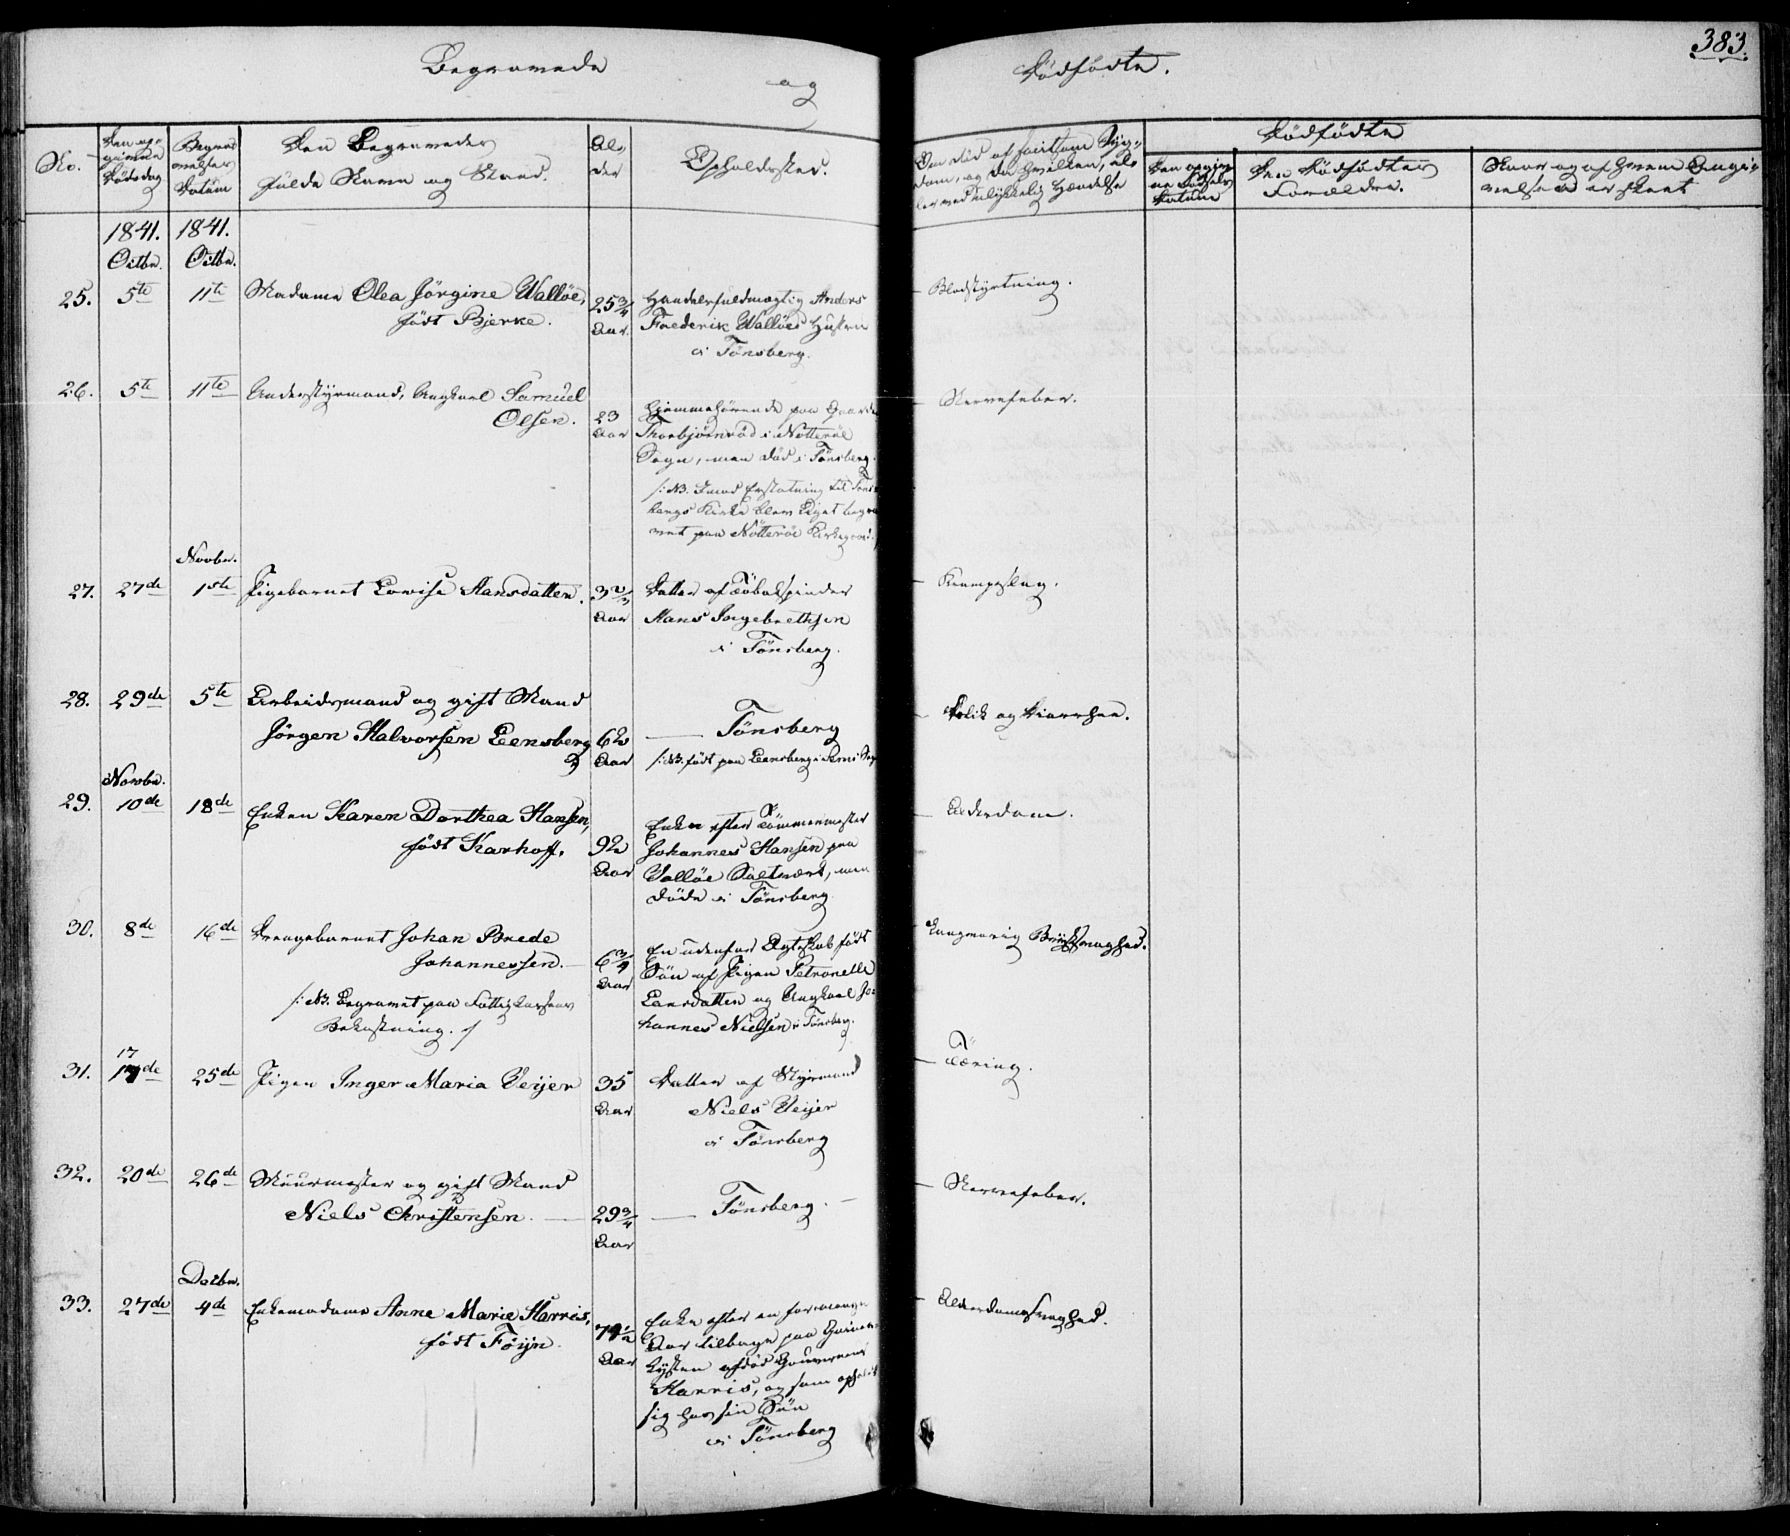 Begravede
og
Dødfødte.
383.
No.
Den opgivne Dødsdag
Begravelses Datum
Den Begravedes
fulde Navn og Stand.
Alder
Opholdssted.
Om død af smitsom Syg-
dom, og da hvilken, el-
ler ved ulykkelig Hændelse
Dødfødte
Den Dødfødtes
Forældre.
1841. 1841.
Octbr. Octbr.
25. 5te 11te Madame Olea Jørgine Walløe,
født Bjerke.
25 3/4
Aar.
Handelsfuldmægtig Anders
Frederik Walløes Hustru
i Tønsberg.
Blodstyrtning.
26. 5te 11te Understyrmand, Ungkarl Samuel
Olsen.
23
Aar
Hjemmehørende paa Gaarden
Thorbjørnrød i Nøtterøe
Sogn, men død i Tønsberg.
/: NB. Imod Erstatning til Tøns-
bergs Kirke blev Liget begra-
vet paa Nøtterøe Kirkegaard
Nervefeber.
Novbr.
27. 27de 1ste Pigebarnet Lovise Hansdatter.
3 2/3
Aar
Datter af Tobakspinder
Hans Ingebrethsen
i Tønsberg.
Krampeslag.
28. 29de 5te Arbeidsmand og gift Mand
Jørgen Halvorsen Leensberg
62
Aar
Tønsberg
/: NB. født paa Leensberg i Sems Sogn
Kolik og Diarrhee.
Novbr.
29. 10de 18de Enken Karen Dorthea Hansen,
født Karhoff.
92
Aar
Enke efter Tømmermester
Johannes Hansen paa
Valløe Saltværk, men
døde i Tønsberg
Alderdom.
30. 8de 16de Drengebarnet Johan Brede
Johannessen.
/: NB. Begravet paa Fattigkassens
Bekostning. :/
6 3/4
Aar
En udenfor Ægteskab født
Søn af Pigen Petronelle
Larsdatter og Ungkarl Jo-
hannes Nielsen i Tønsberg.
Langvarig Brystsvaghed.
17
31. 17de 25de Pigen Inger Maria Veijer
35
Aar
Datter af Styrmand
Niels Veijer
i Tønsberg
Tæring.
32. 20de 26de Muurmester og gift Mand
Niels Christensen.
29 3/4
Aar
Tønsberg.
Nervefeber.
Decbr.
33. 27de 4de Enkemadame Anne Marie Harris,
født Føyn.
74 1/2
Aar
Enke efter en for mange
Aar tilbage paa Guinea-
Kysten afdød Gouverneur
Harris, og som opholdt
sig hos sin Søn
i Tønsberg
Alderdomssvaghed.